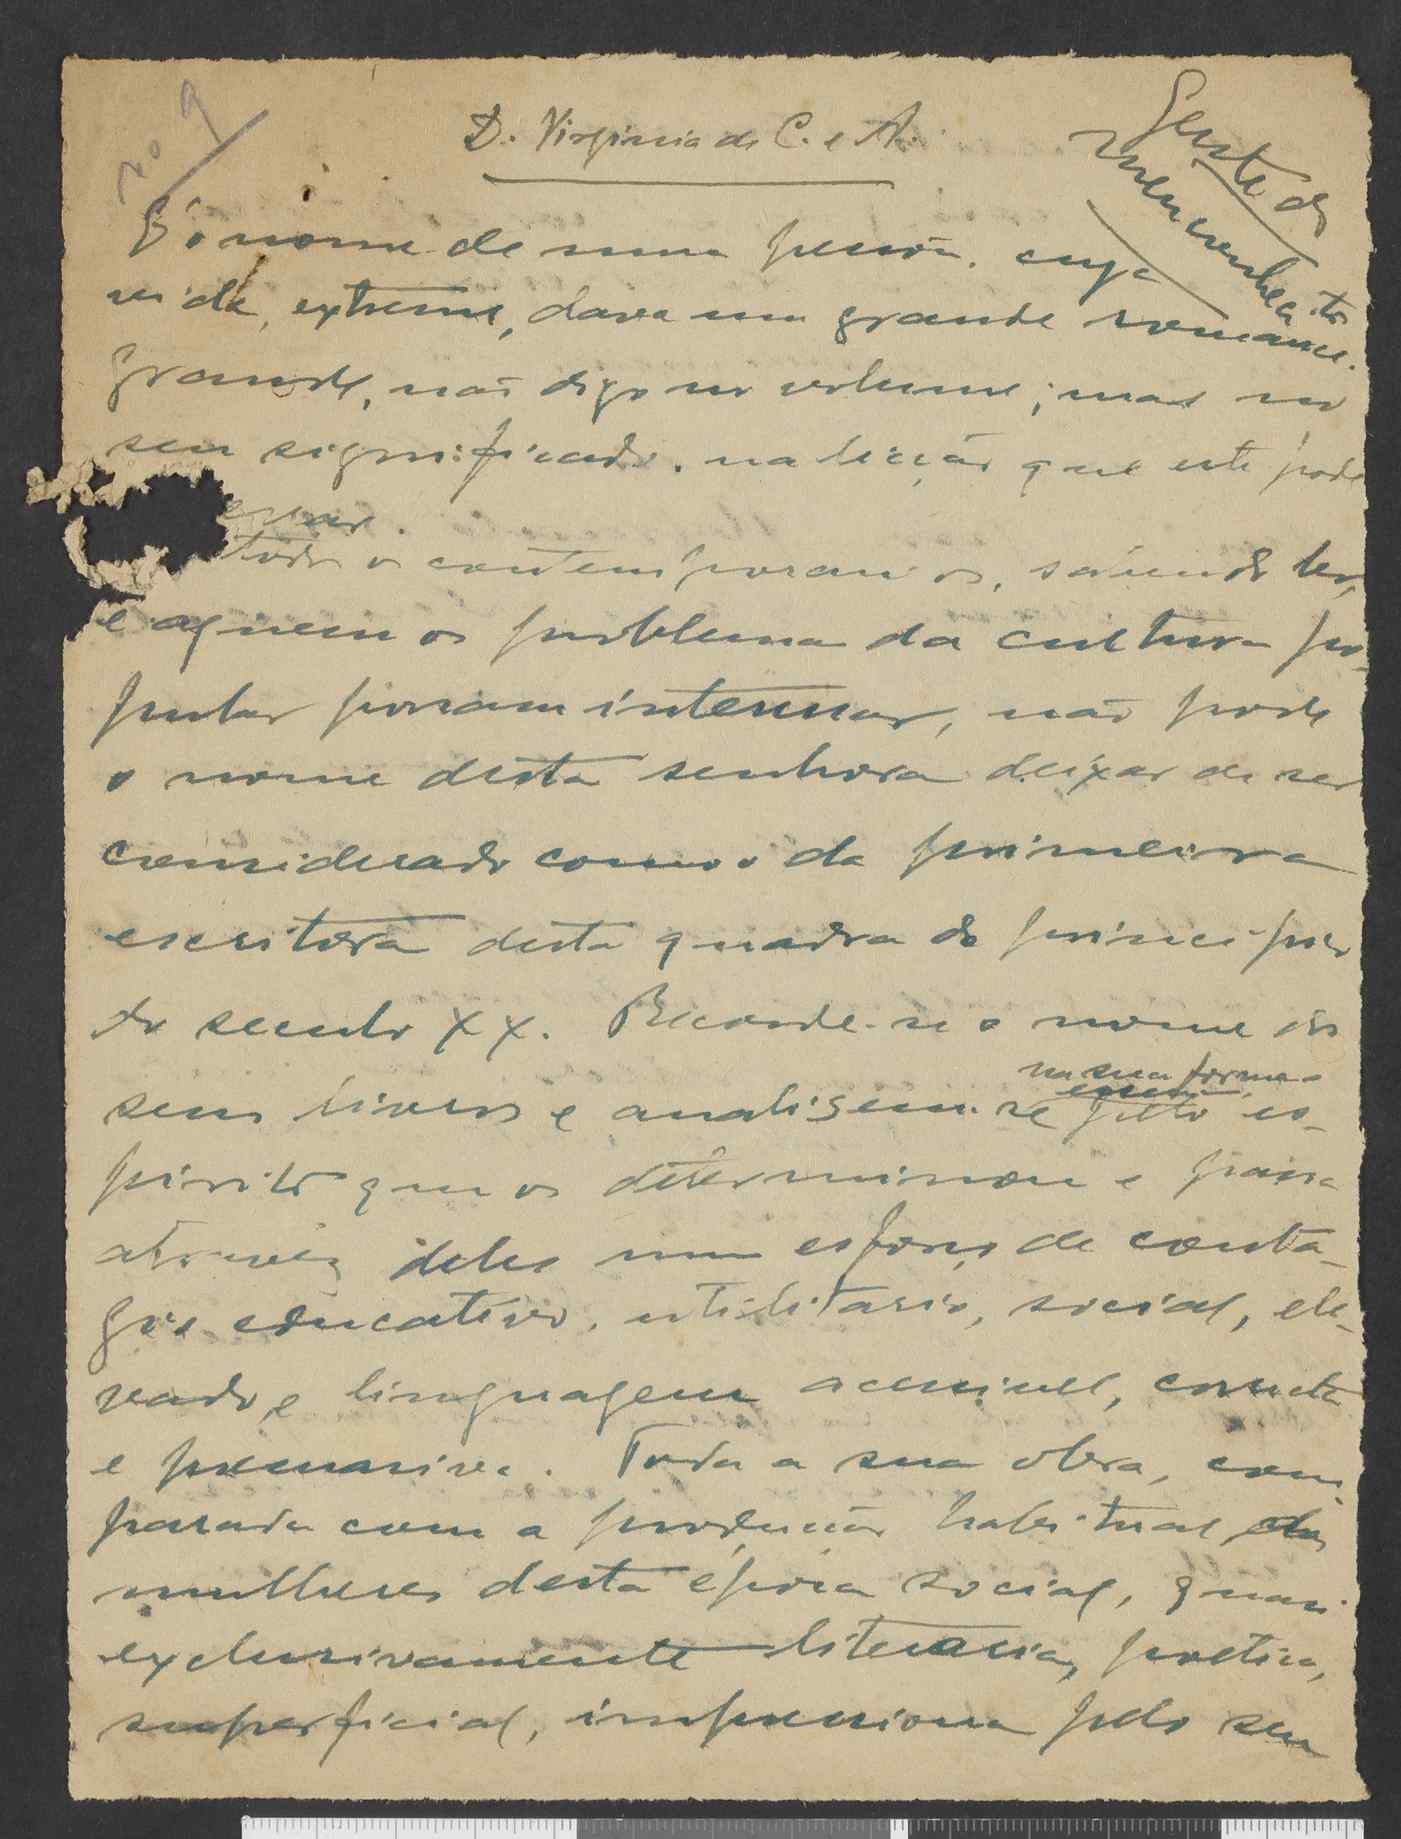 nº 9
D. Virginia de C. e A.
Gente do
meu conhecito
É o nome de uma pessoa, cuja
vida, extreme, dava um grande romance.
Grande, não digo no volume; mas no
seu significado, na licção que este pode
todos os contemporaneos, sabendo ler,
e a quem os problemas da cultura po-
pular possam interessar, não pode
o nome desta senhora deixar de ser
considerado como o da primeira
escritora desta quadra do principio
do seculo XX. Recorde-se o nome dos
na sua forma
seus livros e analise-se pelo es-
pirito que os determinou e passa
atravez deles um esforço de conta-
gio educativo, utilitario, social, ele-
vado, e linguagem acessivel, correcta
e persuasiva. Toda a sua obra, com-
parada com a produção habitual das
mulheres desta época social, quasi
exclusivamente literaria, poetica,
superficial, impressiona pelo seu